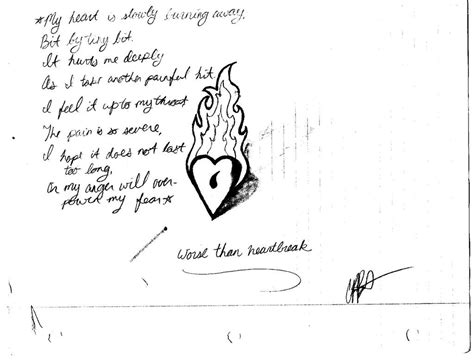 *My heart is slowly burning away,
Bit by tiny bit.
It hurts me deeply
As I take another painful hit.
I feel it up to my throat
The pain is so severe,
I hope it does not last
too long,
Or my anger will over-
power my fear*
Worse than heartbreak